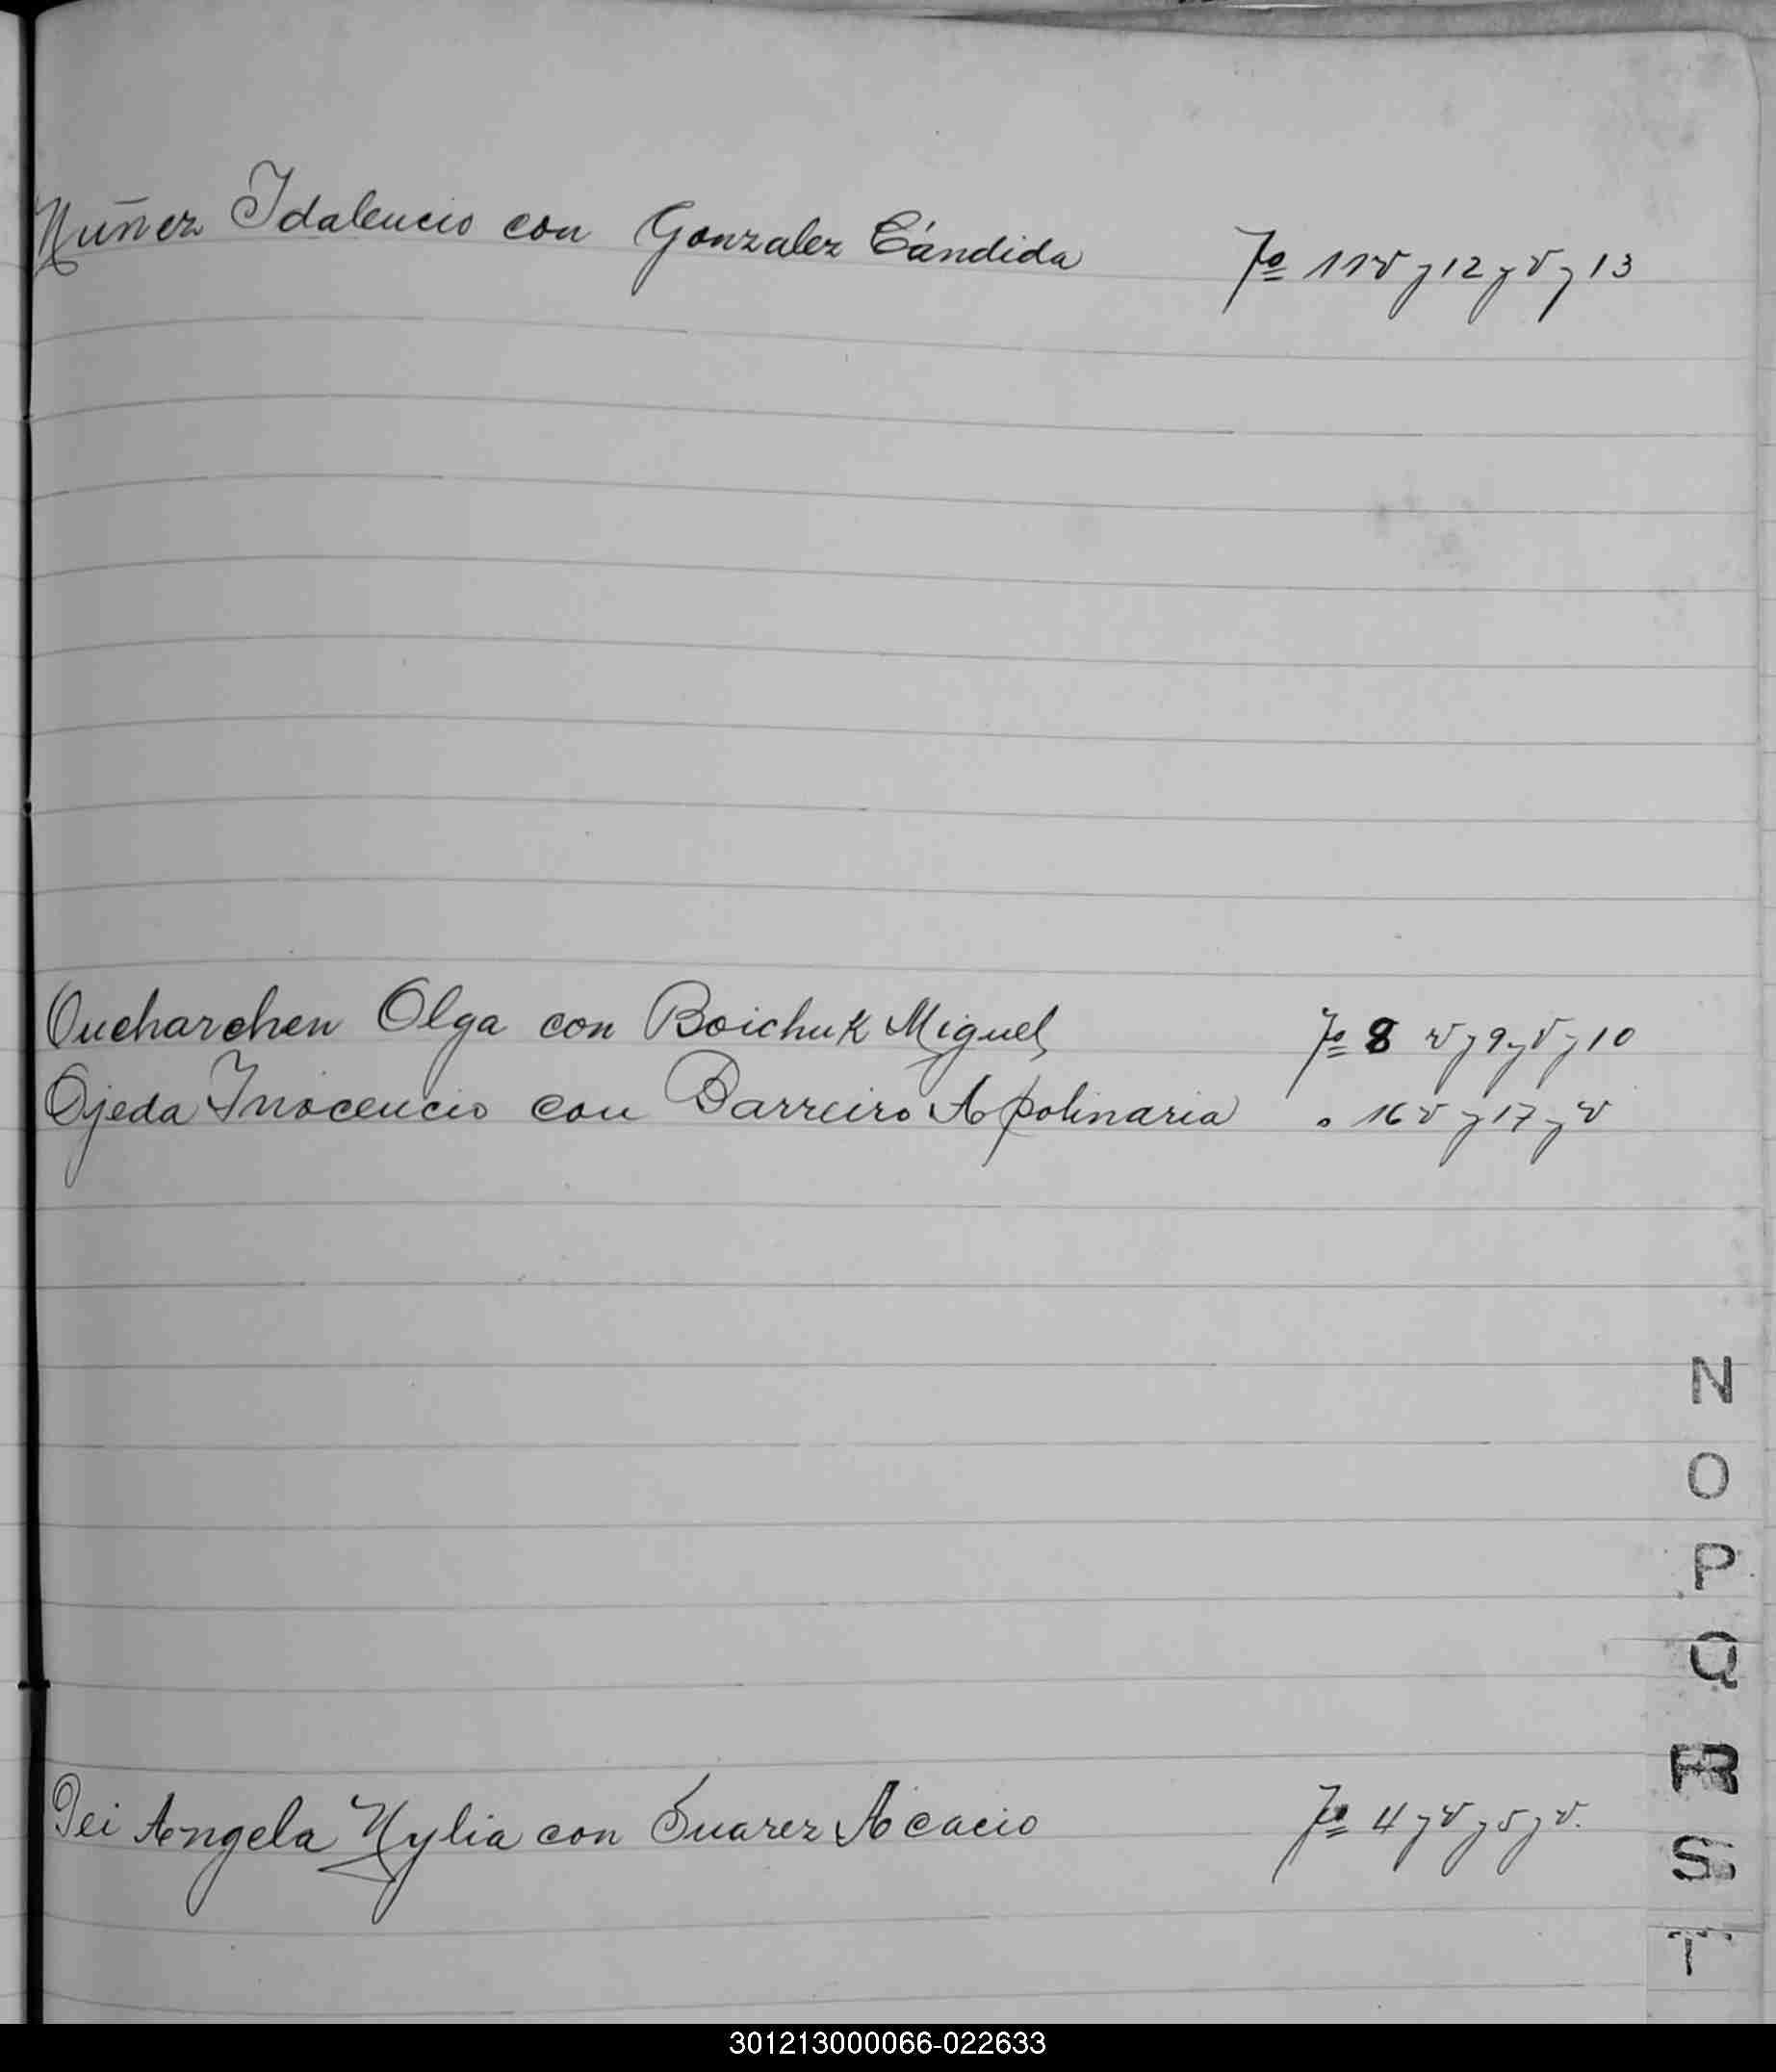 Nuñez Idalencio con Gonzalez Cándida Fo 11v y 12 y v y 13
Oucharchen Olga con Boichuk Miguel Fo 8 v y 9 y v y 10
Ojeda Inocencio con Barreiro Apolinaria " 16 v y 17 y v
Pei Angela Nylia con Suarez Acacio Fo 4 y v y 5 y v.
N
O
P
Q
R
S
T
301213000066-022633